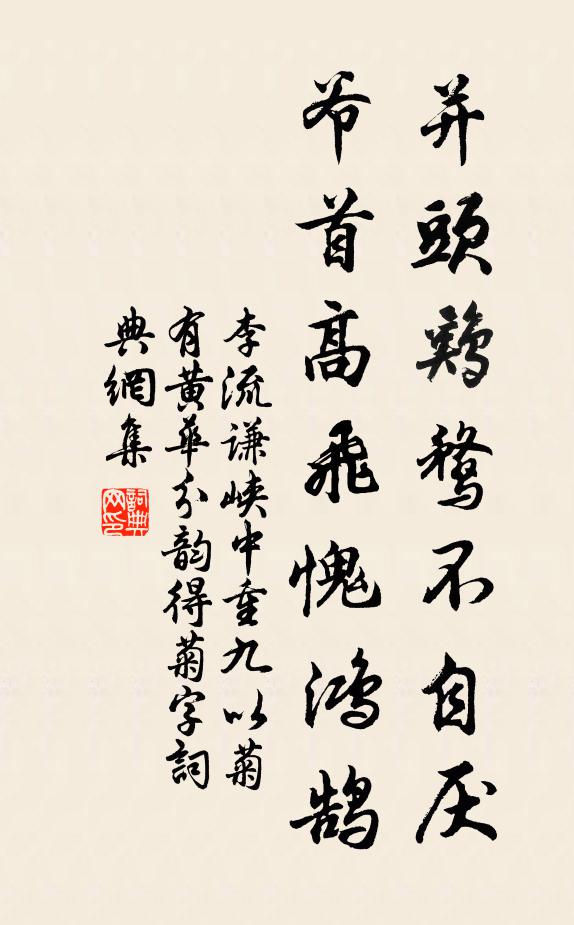 并頭鷄鶩不自厌
首高飛愧鴻鵠
李流謙峽中重九以菊
有黄華分韵得菊字詞
典網集
詞典
网印